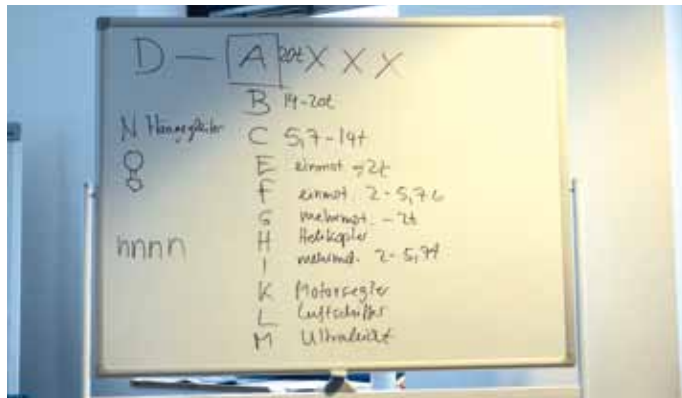 D - A 20t X X X
B 14-20t
N Hängegleiter
C 5,7-14t
E einmot -2t
F einmot. 2-5,7t
G mehrmot. -2t
H Helikopter
I mehrmot. 2-5,7t
hnnn
K Motorsegler
L Luftschiffe
M Ultraleicht